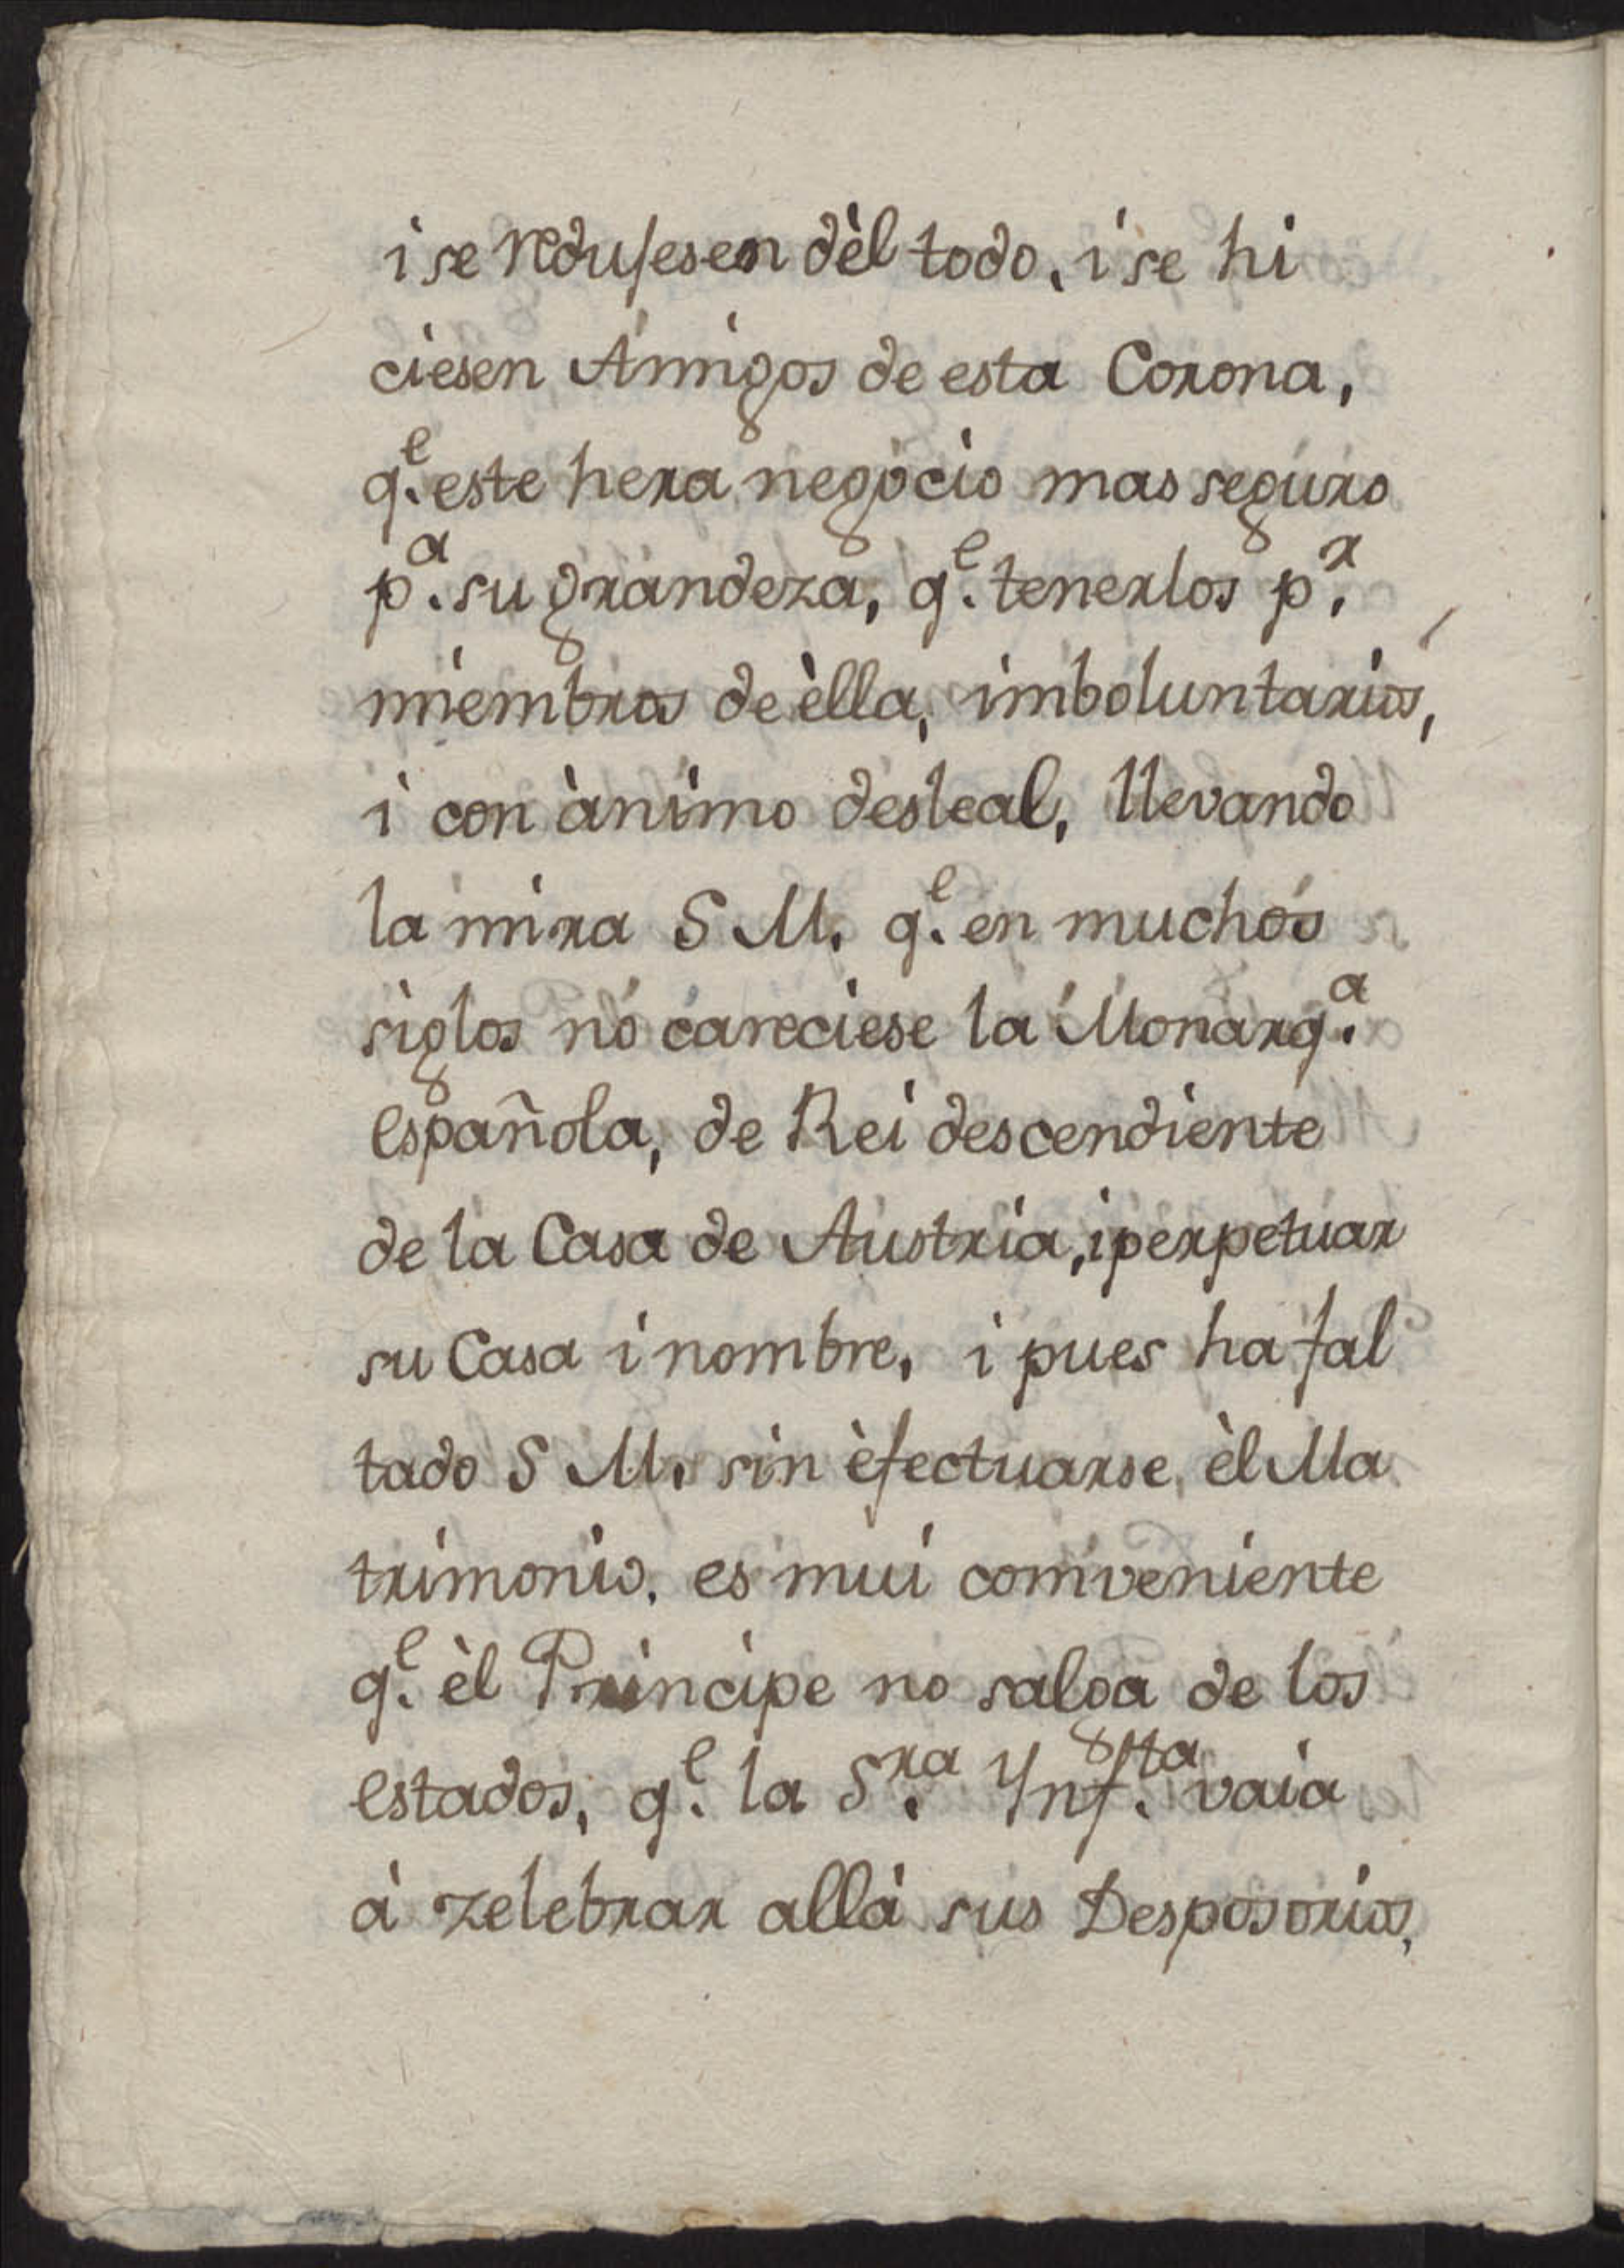 i se redusesen dèl todo, i se hi
ciesen Amigos de esta Corona,
q.e este hera negocio mas seguro
p.a su grandeza, q.e tenerlos p.r
miembros de èlla, imboluntarios,
i con ànimo desleal, llevando
la mira S M. q.e en muchos
siglos no careciese la Monarq.a
española, de Rei descendiente
de la Casa de Austria, i perpetuar
su Casa i nombre, i pues ha fal
tado S M. sin èfectuarse, èl Ma
trimonio, es mui comveniente
q.e èl Principe no salga de los
estados, q.e la S.ra Ynf.ta vaia
à zelebrar allà sus Desposorios,